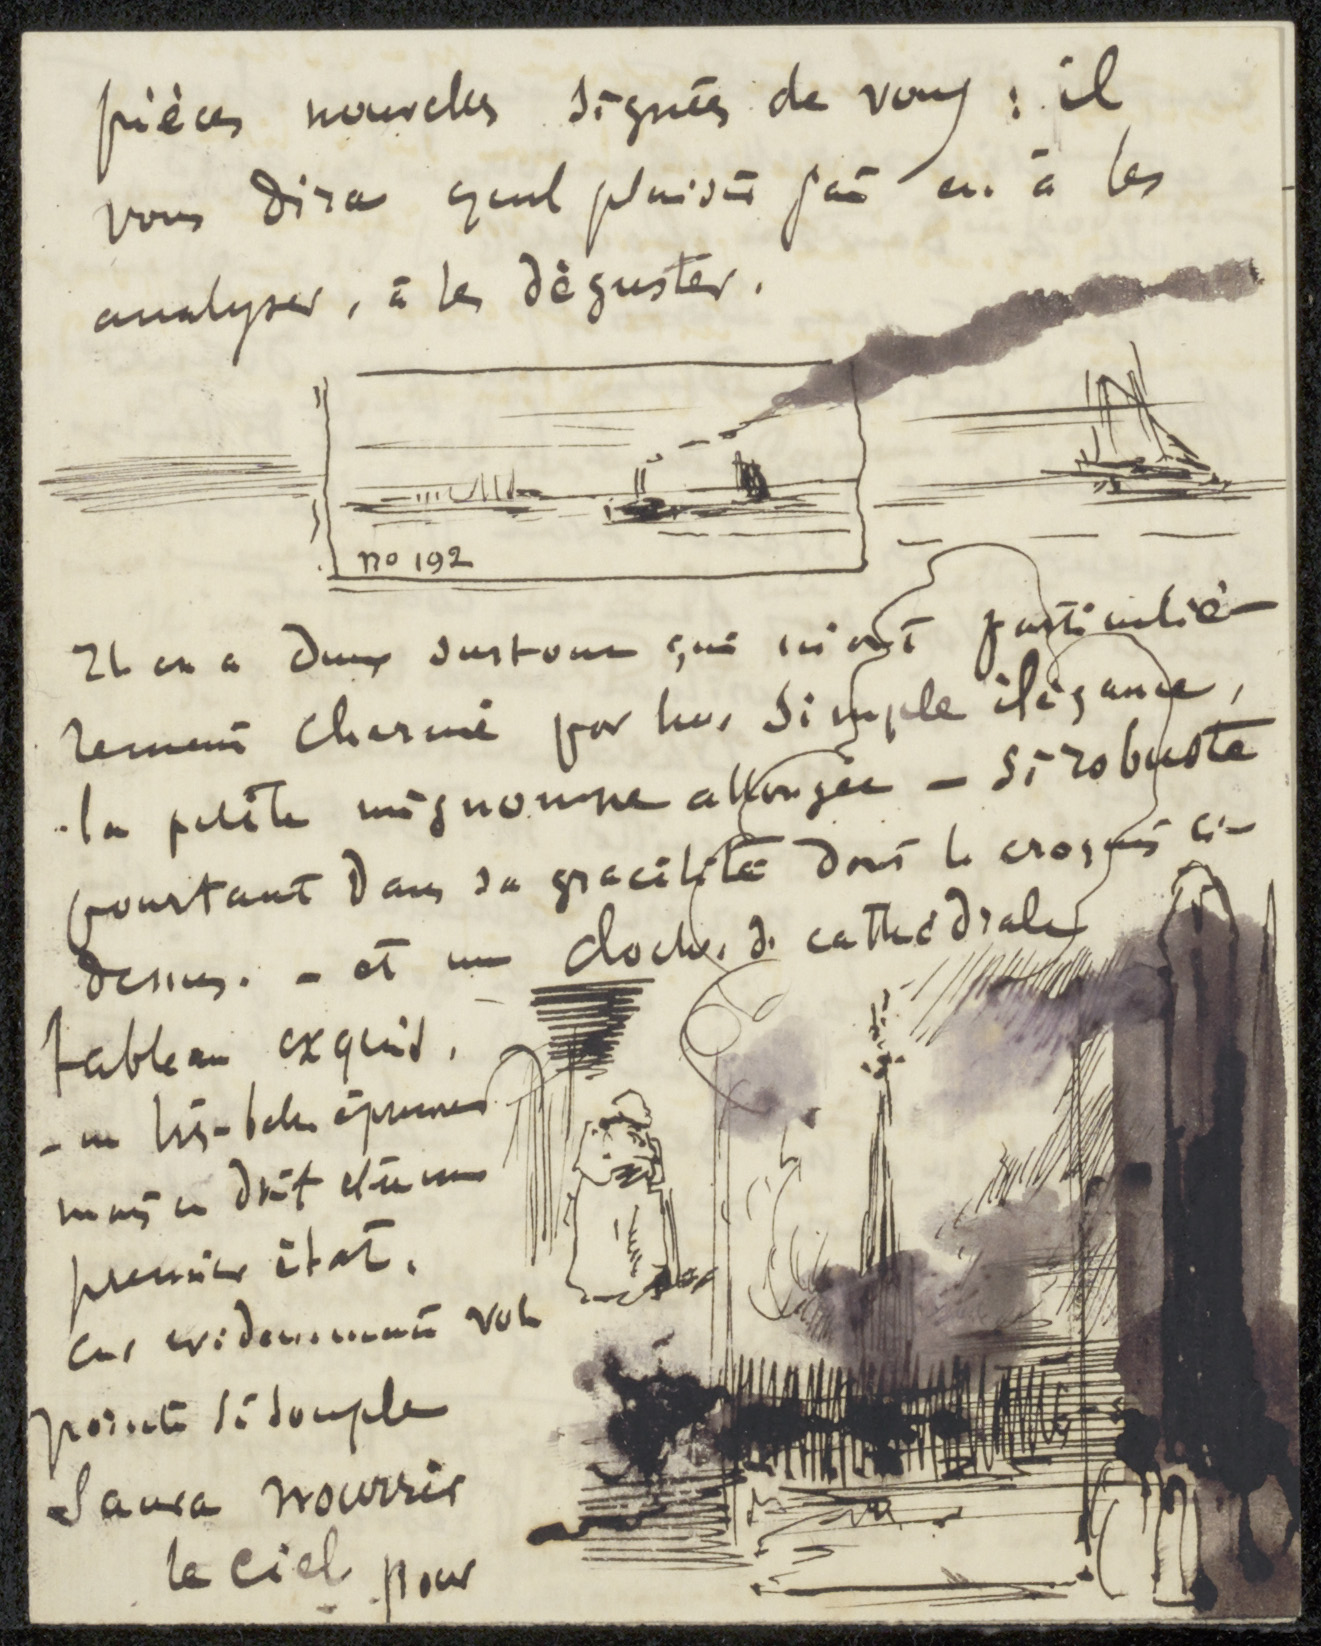 pièces nouvelles signées de vous ; il
vous dira quel plaisir j'ai eu à les
analyser, à les déguster.
no 192
Il en a deux surtout qui m'ont particuliè-
rement charmé par leur simple élégance,
la petite mignonne allongée – si robuste
pourtant dans sa gracilité dont le croquis ci-
dessus. – et un clocher de cathédrale
tableau exquis.
– un très-belle épreuve
mais ce doit être un
premier état.
car evidemment votre
pointe si souple
saura nourrir
le ciel pour